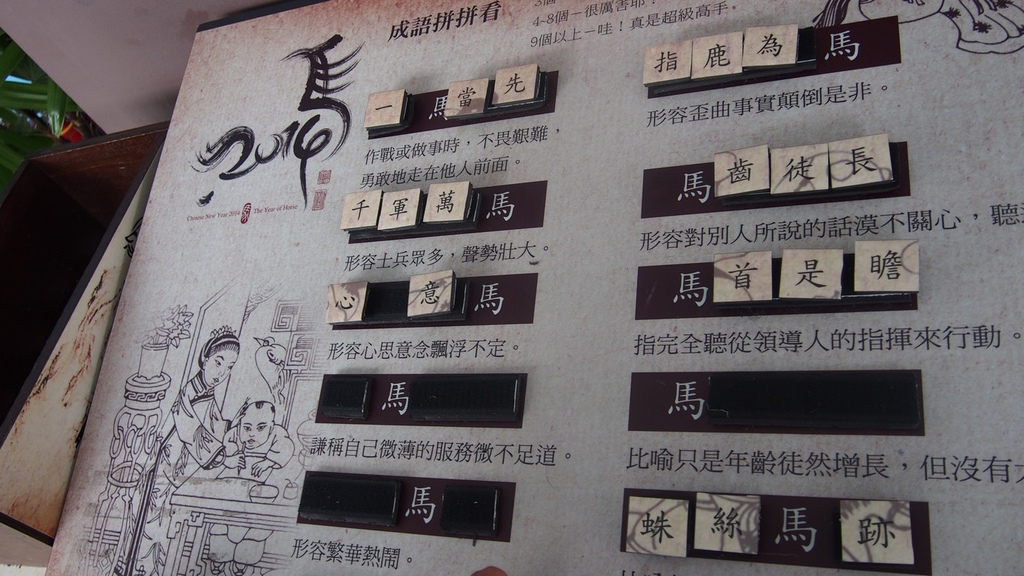 成語拼拼看
4~8個－很厲害耶！
9個以上－哇！真是超級高手。
馬
2014
Chinese New Year 2014 The Year of Horse
一馬當先
作戰或做事時，不畏艱難，
勇敢地走在他人前面。
千軍萬馬
形容士兵眾多，聲勢壯大。
心 意馬
形容心思意念飄浮不定。
馬
謙稱自己微薄的服務微不足道。
馬
形容繁華熱鬧。
指鹿為馬
形容歪曲事實顛倒是非。
馬齒徒長
形容對別人所說的話漠不關心，聽
馬首是瞻
指完全聽從領導人的指揮來行動。
馬
比喻只是年齡徒然增長，但沒有
蛛絲馬跡